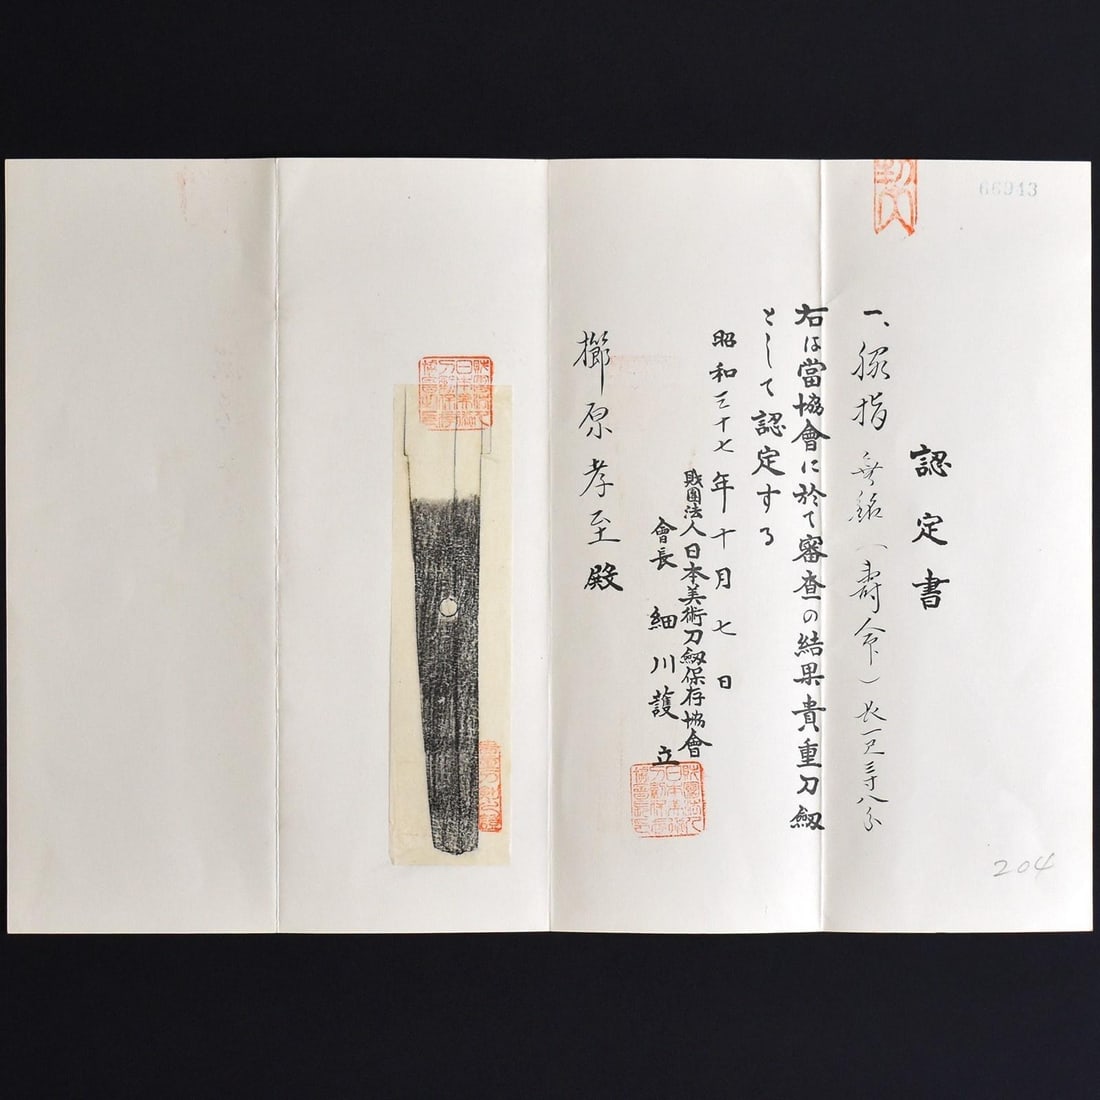 66943
認定書
一、脇指 無銘（寿命）長一尺三寸八分
右は當協會に於て審査の結果貴重刀劔
として認定する
昭和三十七年十月七日
財團法人日本美術刀劔保存協會
會長 細川護立
櫛原孝至殿
204